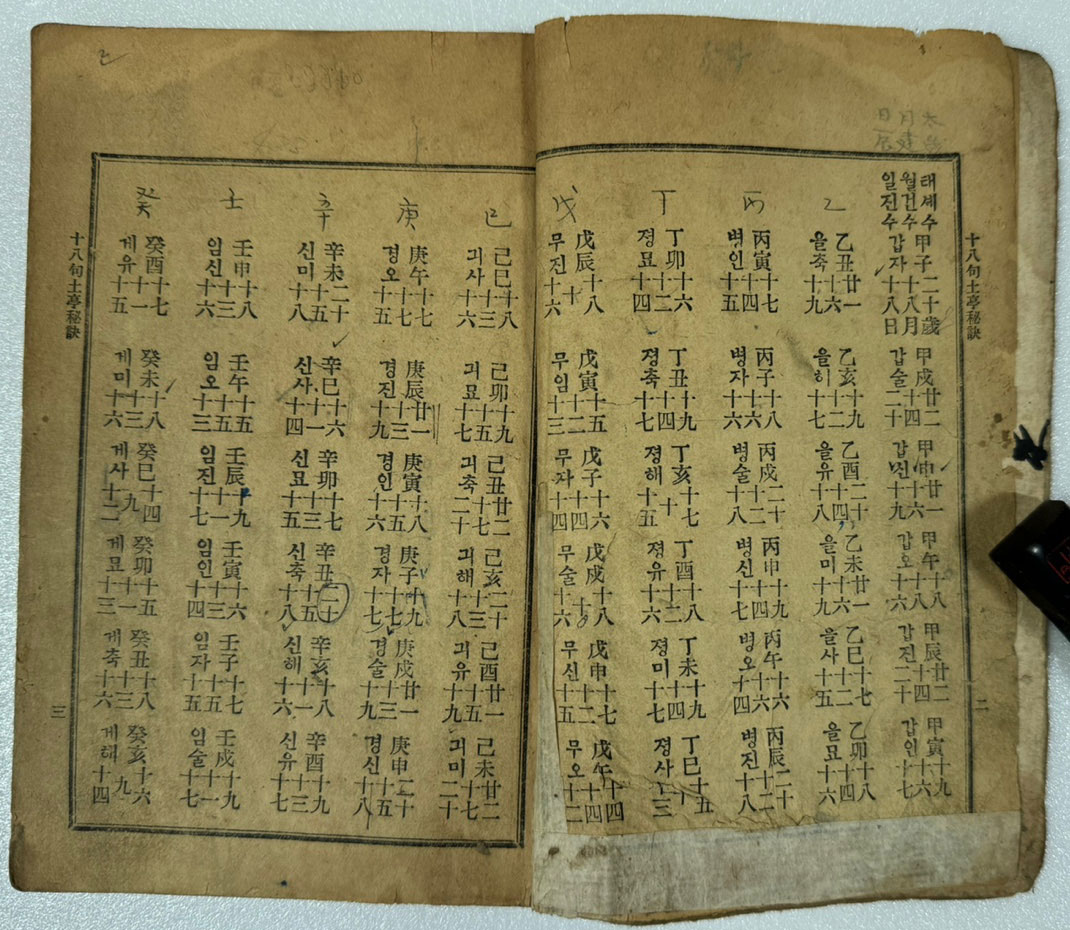 十八句土亭秘訣
二
태세수 甲子二十歲 甲戌廿二 甲申廿一 甲午十八 甲辰廿二 甲寅十九
월건수 十八月 十四 十六 十八 十四 十六
일진수 갑자十八日 갑술二十 갑신十九 갑오十六 갑진二十 갑인十七
乙
乙丑廿一 乙亥十九 乙酉二十 乙未廿一 乙巳十七 乙卯十八
十六 十二 十四 十六 十二 十四
을축十九 을히十七 을유十八 을미十九 을사十五 을묘十六
丙
丙寅十七 丙子十八 丙戌二十 丙申十九 丙午十六 丙辰二十
十四 十六 十二 十四 十六 十二
병인十五 병자十六 병술十八 병신十七 병오十四 병진十八
丁
丁卯十六 丁丑十九 丁亥十七 丁酉十八 丁未十九 丁巳十五
十二 十四 十 十二 十四 十
졍묘十四 졍축十七 졍해十五 졍유十六 졍미十七 졍사十三
戊
戊辰十八 戊寅十五 戊子十六 戊戌十八 戊申十七 戊午十四
十 十二 十四 十 十二 十四
무진十六 무임十三 무자十四 무술十六 무신十五 무오十二
己
己巳十八 己卯十九 己丑廿二 己亥二十 己酉廿一 己未廿二
十三 十五 十七 十三 十五 十七
긔사十六 긔묘十七 긔축二十 긔해十八 긔유十九 긔미二十
庚
庚午十七 庚辰廿一 庚寅十八 庚子十九 庚戌廿一 庚申二十
十七 十三 十五 十七 十三 十五
경오十五 경진十九 경인十六 경자十七 경술十九 경신十八
辛
辛未二十 辛巳十六 辛卯十七 辛丑二十 辛亥十八 辛酉十九
十五 十一 十三 十五 十一 十三
신미十八 신사十四 신묘十五 신축十八 신해十六 신유十七
壬
壬申十八 壬午十五 壬辰十九 壬寅十六 壬子十七 壬戌十九
十三 十五 十一 十三 十五 十一
임신十六 임오十三 임진十七 임인十四 임자十五 임술十七
癸
癸酉十七 癸未十八 癸巳十四 癸卯十五 癸丑十八 癸亥十六
十一 十三 九 十一 十三 九
게유十五 게미十六 게사十二 게묘十三 게축十六 게해十四
十八句土亭秘訣
三